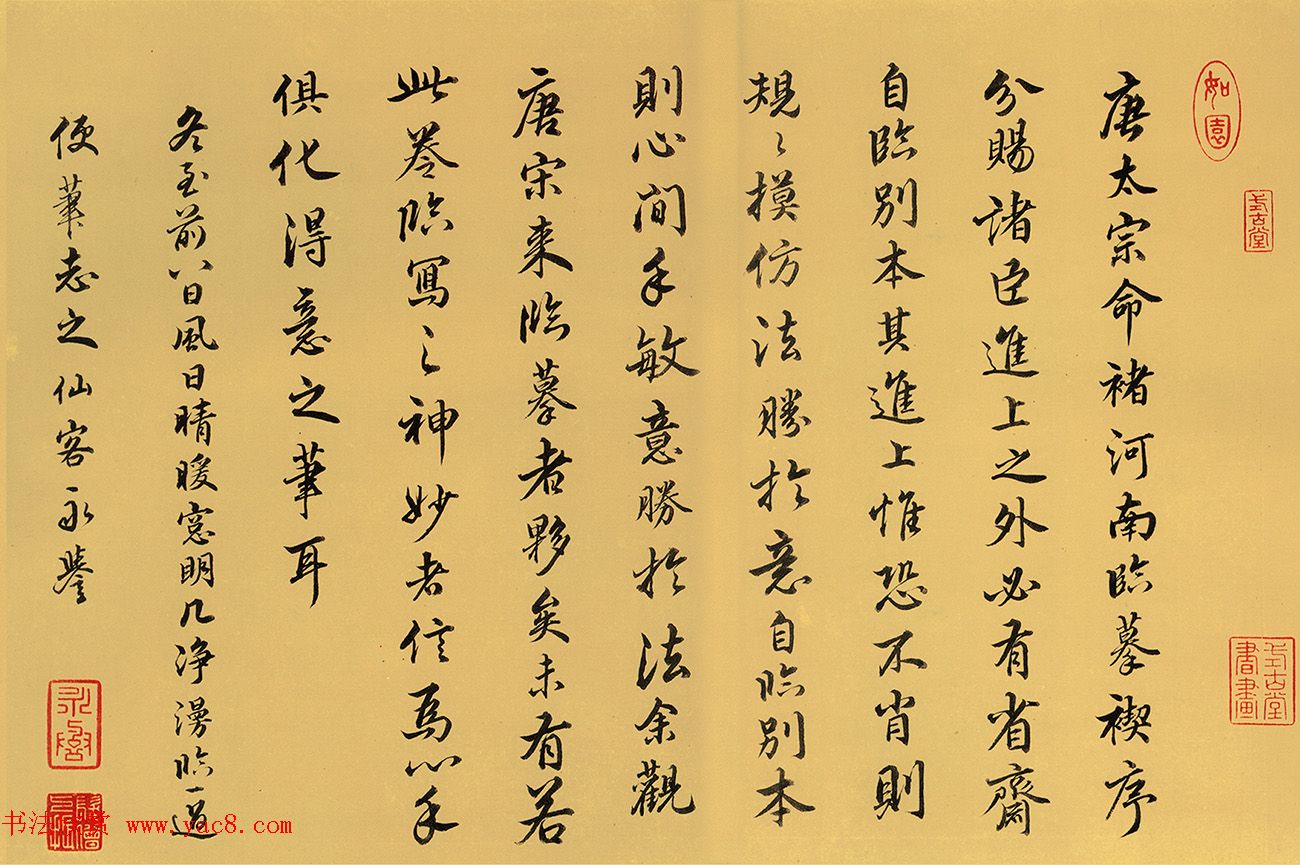 如園
式古堂
式古堂書畫
唐太宗命褚河南臨摹禊序
分賜諸臣進上之外必有省齋
自臨別本其進上惟恐不肖則
規〻摸仿法勝於意自臨別本
則心閒手敏意勝於法余觀
唐宋来臨摹者夥矣未有若
此卷臨寫之神妙者信為心手
俱化得意之筆耳
冬至前八日風日晴暖窓明几净漫臨一過
便筆志之仙客永譽
书法欣赏 www.yac8.com